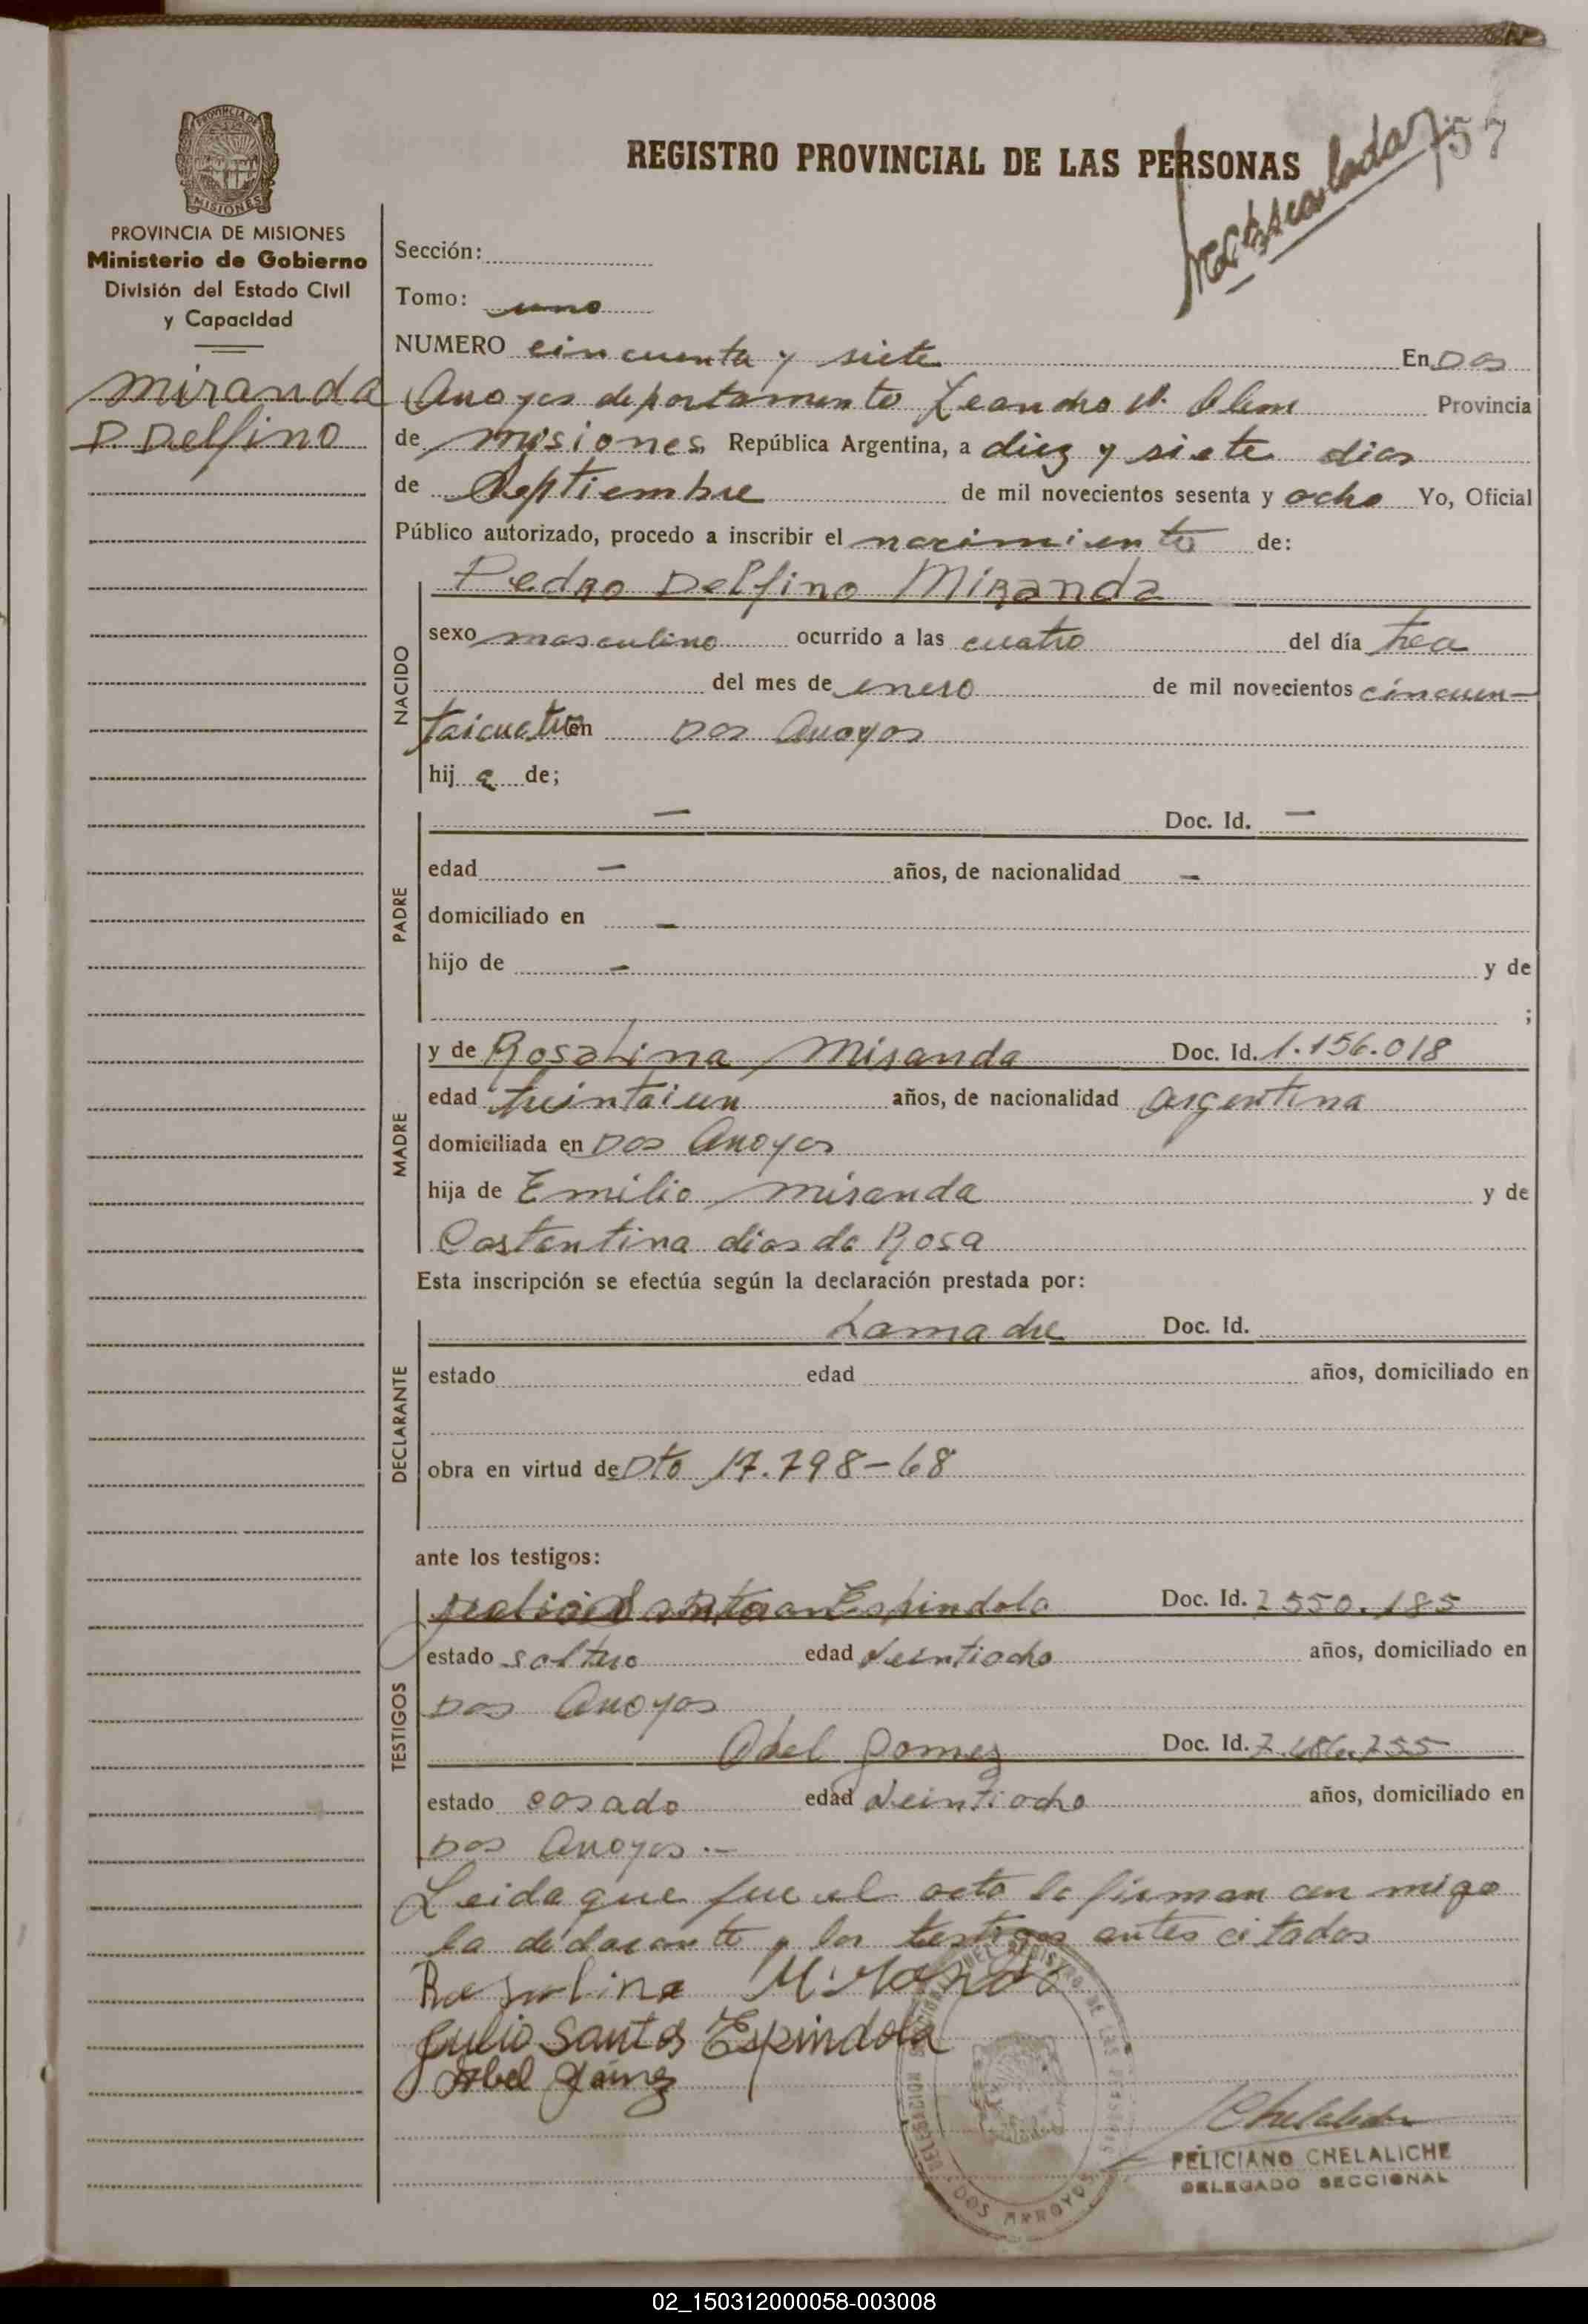 PROVINCIA DE
MISIONES
PROVINCIA DE MISIONES
Ministerio de Gobierno
División del Estado Civil
y Capacidad
Miranda
P. Delfino
REGISTRO PROVINCIAL DE LAS PERSONAS
57
Sección:
Tomo: uno
NUMERO cincuenta y siete En Dos
Arroyos departamento Leandro N. Alem Provincia
de Misiones República Argentina, a diez y siete dias
de Septiembre de mil novecientos sesenta y ocho Yo, Oficial
Público autorizado, procedo a inscribir el nacimiento de:
Pedro Delfino Miranda
NACIDO
sexo masculino ocurrido a las cuatro del día
del mes de enero de mil novecientos cincuen-
taicuatro en Dos Arroyos
hij o de;
PADRE
— Doc. Id. —
edad — años, de nacionalidad —
domiciliado en —
hijo de — y de
;
MADRE
y de Rosalina Miranda Doc. Id. 1.156.018
edad treintaiun años, de nacionalidad argentina
domiciliada en Dos Arroyos
hija de Emilio Miranda y de
Costantina dias da Rosa
Esta inscripción se efectúa según la declaración prestada por:
DECLARANTE
La madre Doc. Id.
estado edad años, domiciliado en
obra en virtud de Dto 17.798-68
ante los testigos:
TESTIGOS
Julio Santos Espindola Doc. Id. 7.550.185
estado soltero edad veintiocho años, domiciliado en
Dos Arroyos
Abel Gomez Doc. Id.
estado casado edad veintiocho años, domiciliado en
Dos Arroyos.-
Leida que fue el acta la firman con migo
la declarante y los testigos antes citados
Rosalina Miranda
Julio Santos Espindola
Abel Gómez
DOS ARROYOS
FELICIANO CHELALICHE
DELEGADO SECCIONAL
02_150312000058-003008